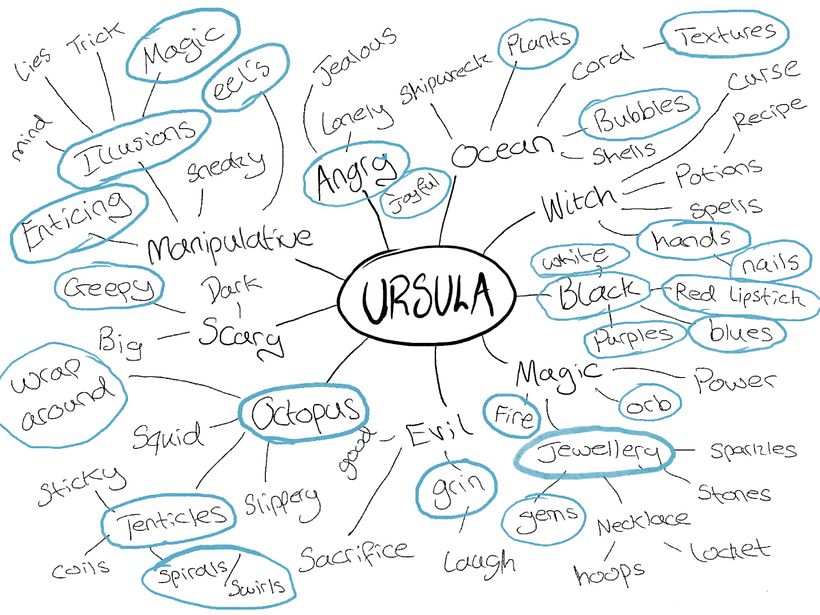 Lies
Trick
Magic
eel's
mind
Illusions
Sneaky
Enticing
Manipulative
Jealous
Lonely
Angry
Joyful
Shipwreck
Plants
Coral
Textures
Ocean
Bubbles
Shells
Curse
Recipe
Witch
Potions
Spells
hands
nails
URSULA
white
Black
Red Lipstick
Purples
blues
Creepy
Dark
Big
Scary
wrap
around
Octopus
Squid
Sticky
Tenticles
Slippery
coils
Spirals/
Swirls
Evil
good
grin
Sacrifice
Laugh
Magic
Power
Fire
orb
Jewellery
Sparkles
Stones
gems
Necklace
hoops
Locket